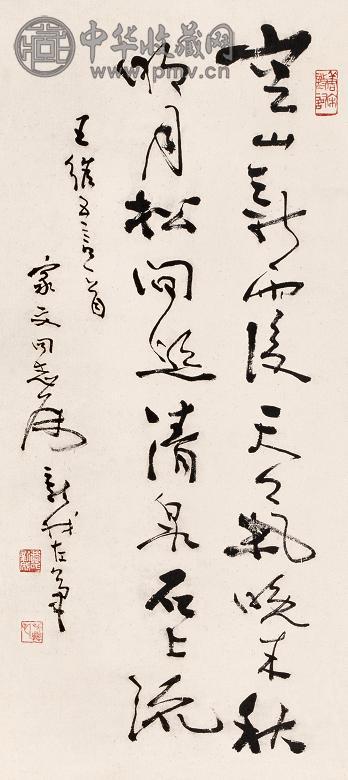 中华收藏网
www.pmv.cn
空山新雨後天氣晚来秋
明月松間照清泉石上流
王維五言一首
家文同志属
新我左筆